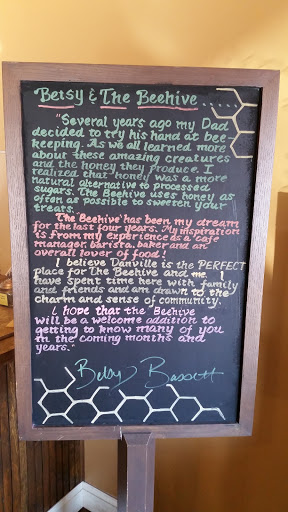 Betsy & The Beehive.....
"Several years ago my Dad
decided to try his hand at bee-
keeping. As we all learned more
about these amazing creatures
and the honey they produce, I
realized that honey was a more
natural alternative to processed
sugars. The Beehive uses honey as
often as possible to sweeten your
treats.
The 'Beehive' has been my dream
for the last four years. My inspiration
is from my experience as a 'cafe
manager, barista, baker and an
overall lover of food!
I believe Danville is the PERFECT
place for The Beehive and me. I
have spent time here with family
and friends and am drawn to the
charm and sense of community.
I hope that the 'Beehive
will be a welcome addition to
getting to know many of you
in the coming months and
years."
Betsy Bassett